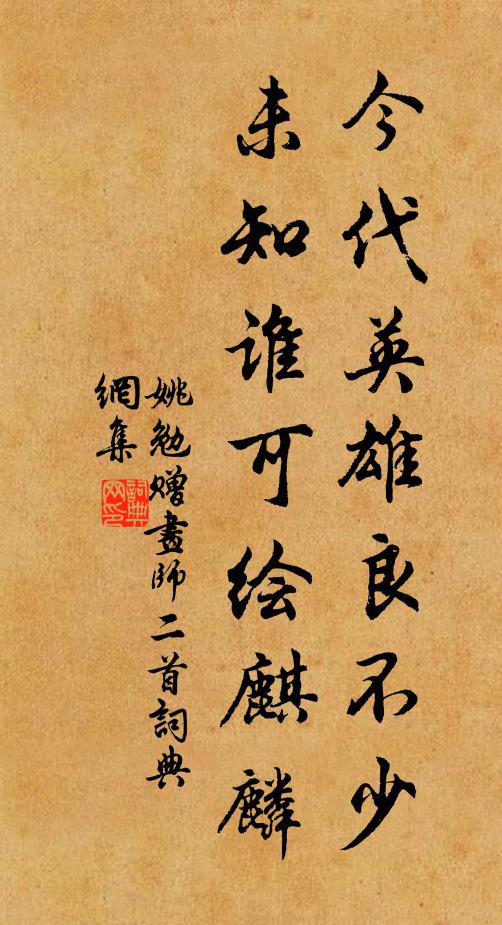 今代英雄良不少
未知谁可绘麒麟
姚勉赠畫師二首詞典
網集
詞典
网印